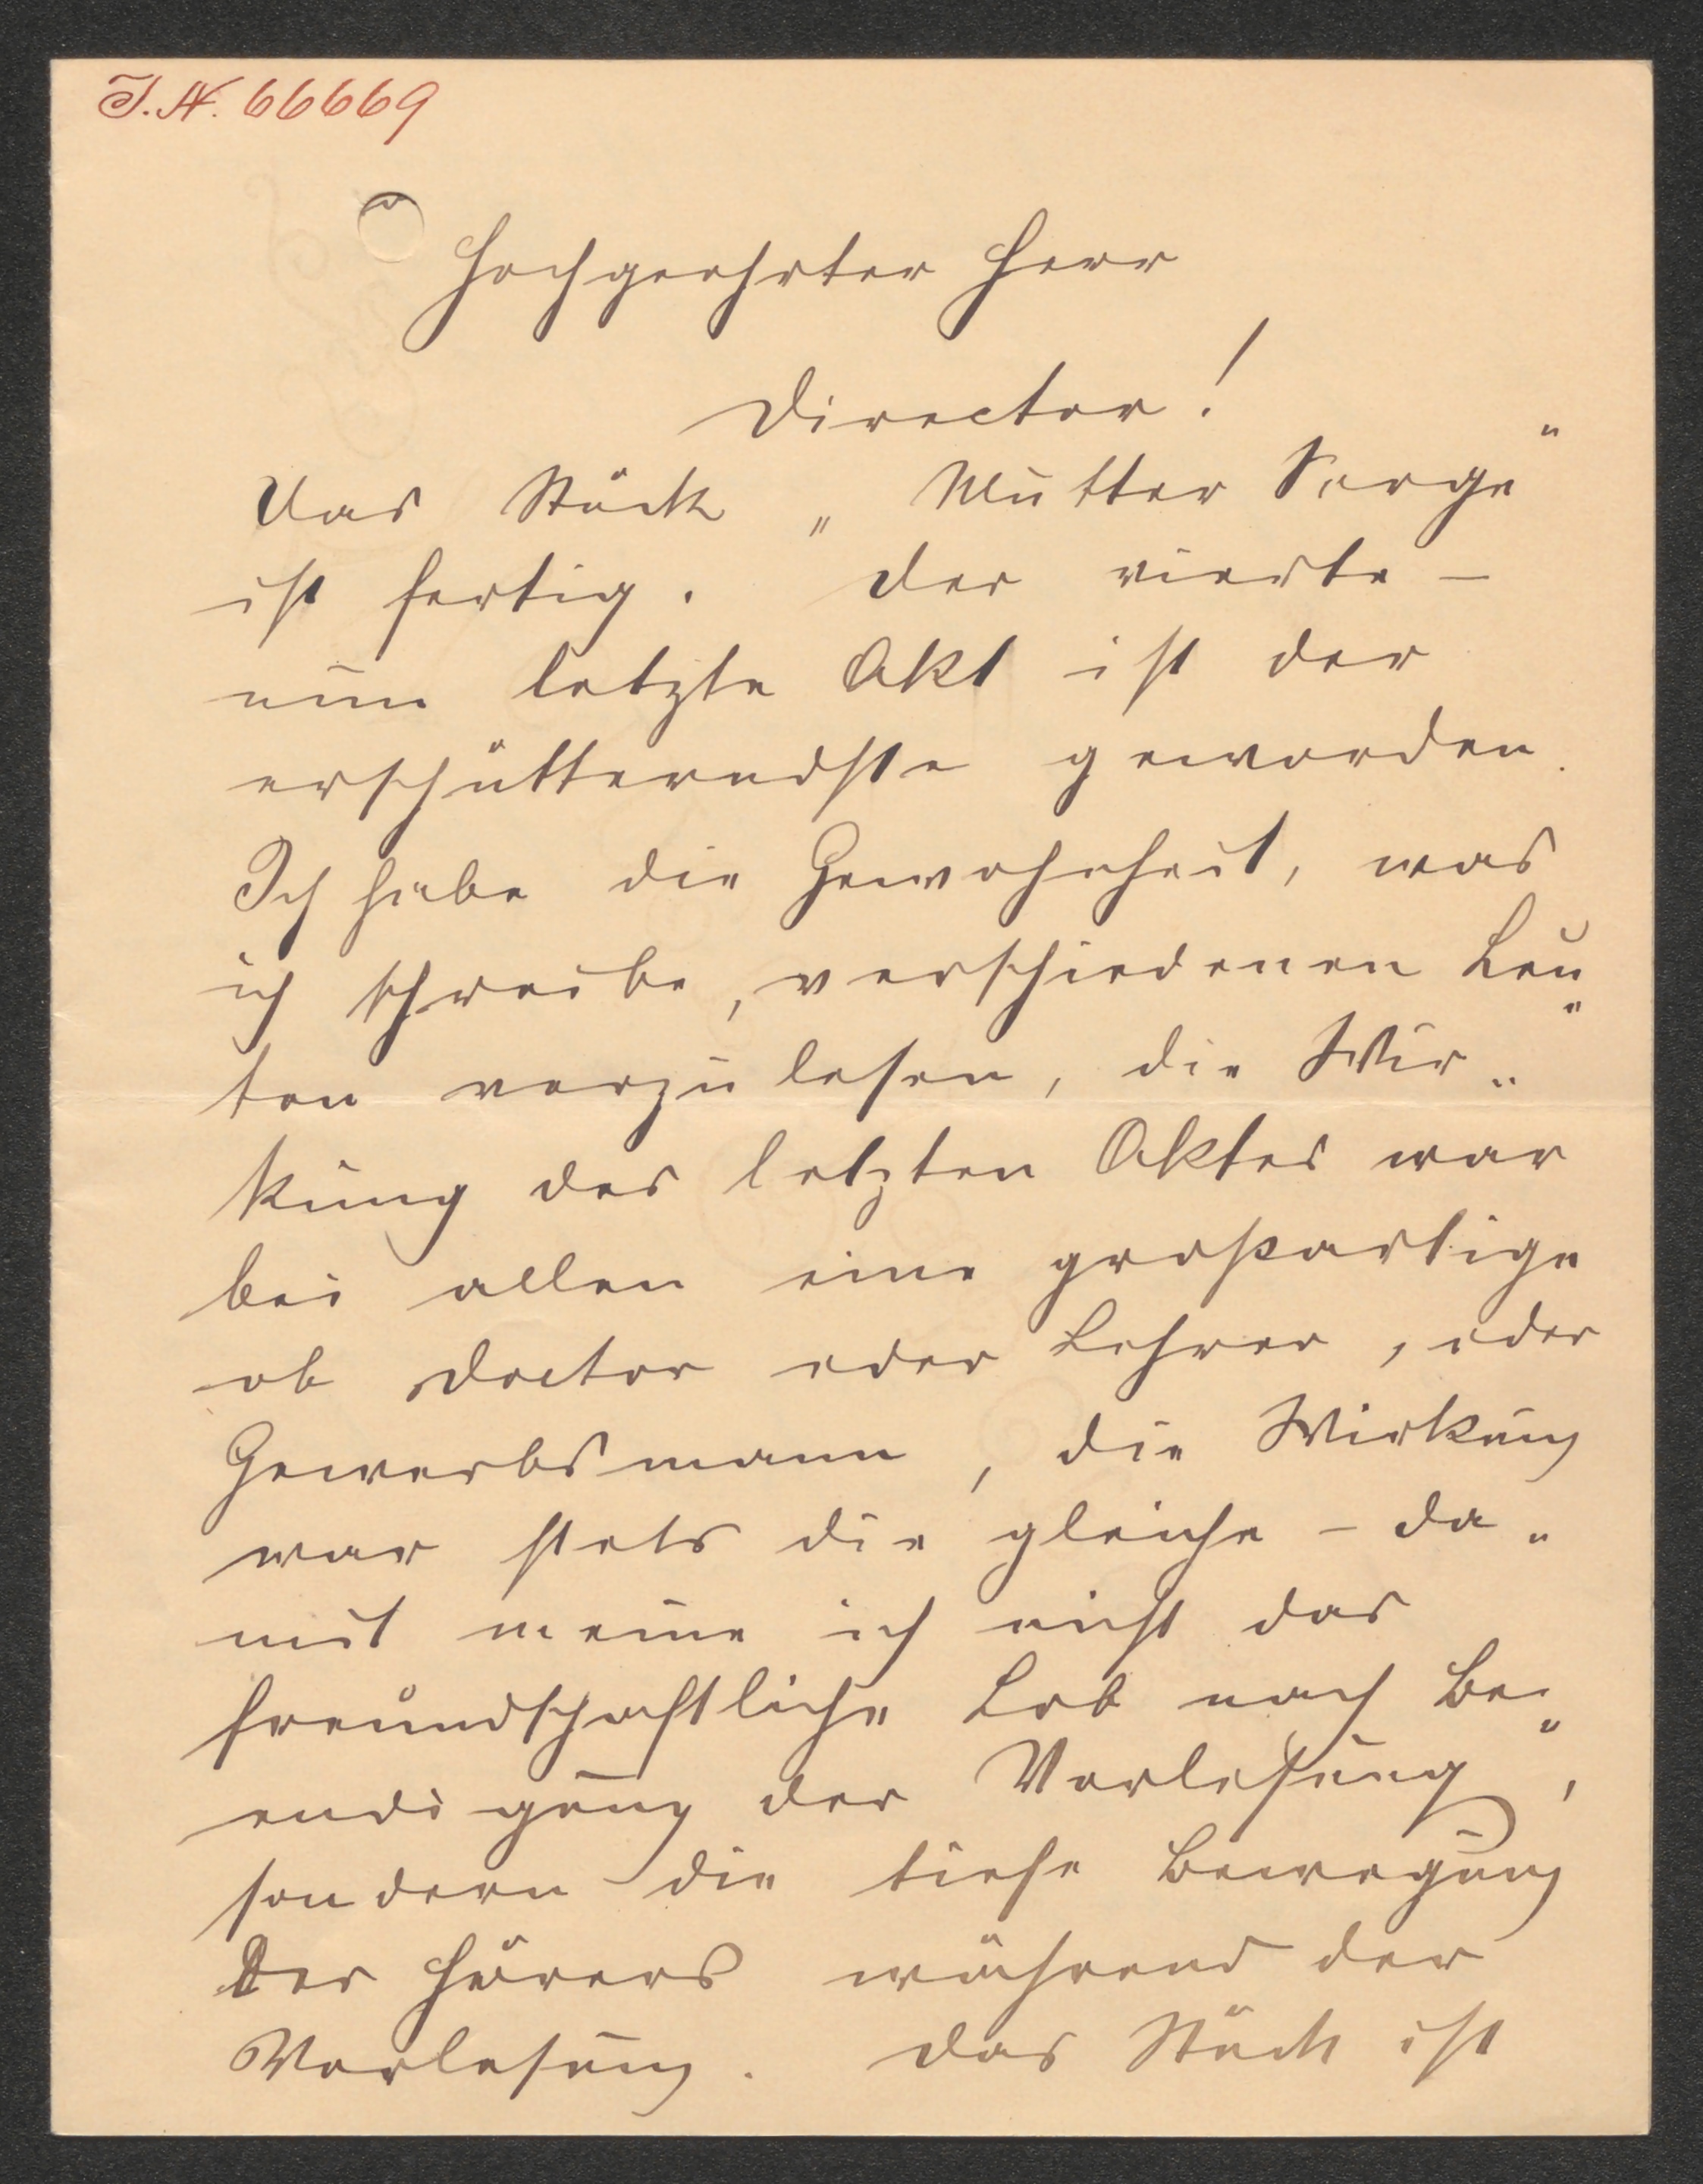 I.N. 66669
Hochgeehrter Herr
Director!
Das Stück „Mutter Sorge“
ist fertig. Der vierte –
nun letzte Akt ist der
erschütterndste geworden.
Ich habe die Gewohnheit, was
ich schreibe, verschiedenen Leu„
ten vorzulesen, die Wir„
kung des letzten Aktes war
bei allen eine großartige
ob Doctor oder Lehrer, oder
Gewerbsmann, die Wirkung
war stets die gleiche – da„
mit meine ich nicht das
freundschaftliche Lob nach Be„
endigung der Vorlesung,
sondern die tiefe Bewegung
Des Hörers während der
Vorlesung. Das Stück ist